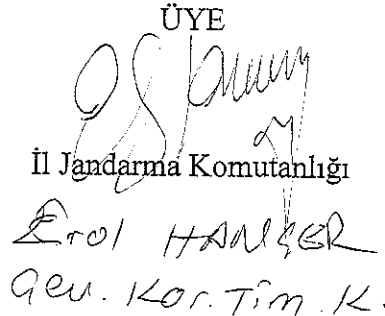 ÜYE
İl Jandarma Komutanlığı
Erol HANÇER
Çev. Kor. Tim. K.